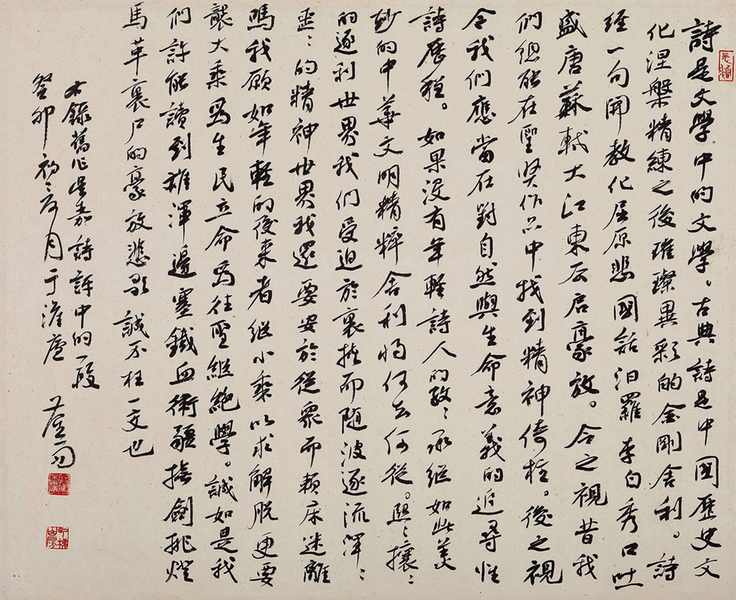 詩是文學中的文學。古典詩是中國歷史文
化涅槃精練之後璀璨異彩的金剛舍利。詩
經一句開教化屈原悲國話汨羅李白秀口吐
盛唐蘇軾大江東去启豪放。今之視昔我
們但能在聖賢作品中找到精神倚柱。後之視
今我們應當在對自然與生命意義的追尋惟
詩展程。如果沒有年輕詩人的孜孜承繼如此美
妙的中華文明精粹舍利將何去何從。熙熙攘攘
的逐利世界我們受迫於裹挾而隨波逐流渾渾
噩噩的精神世界我還要安於從眾而賴床迷離
嗎我願如年輕的後來者從小乘以求解脫更要
襲大乘為生民立命為往聖繼絕學。誠如是我
們許能讀到雄渾邊塞鐵血衛疆撫劍挑燈
馬革裹尸的豪放悲歌誠不枉一文也
右錄舊作星嘉詩評中的一段
癸卯初之月于淮廬